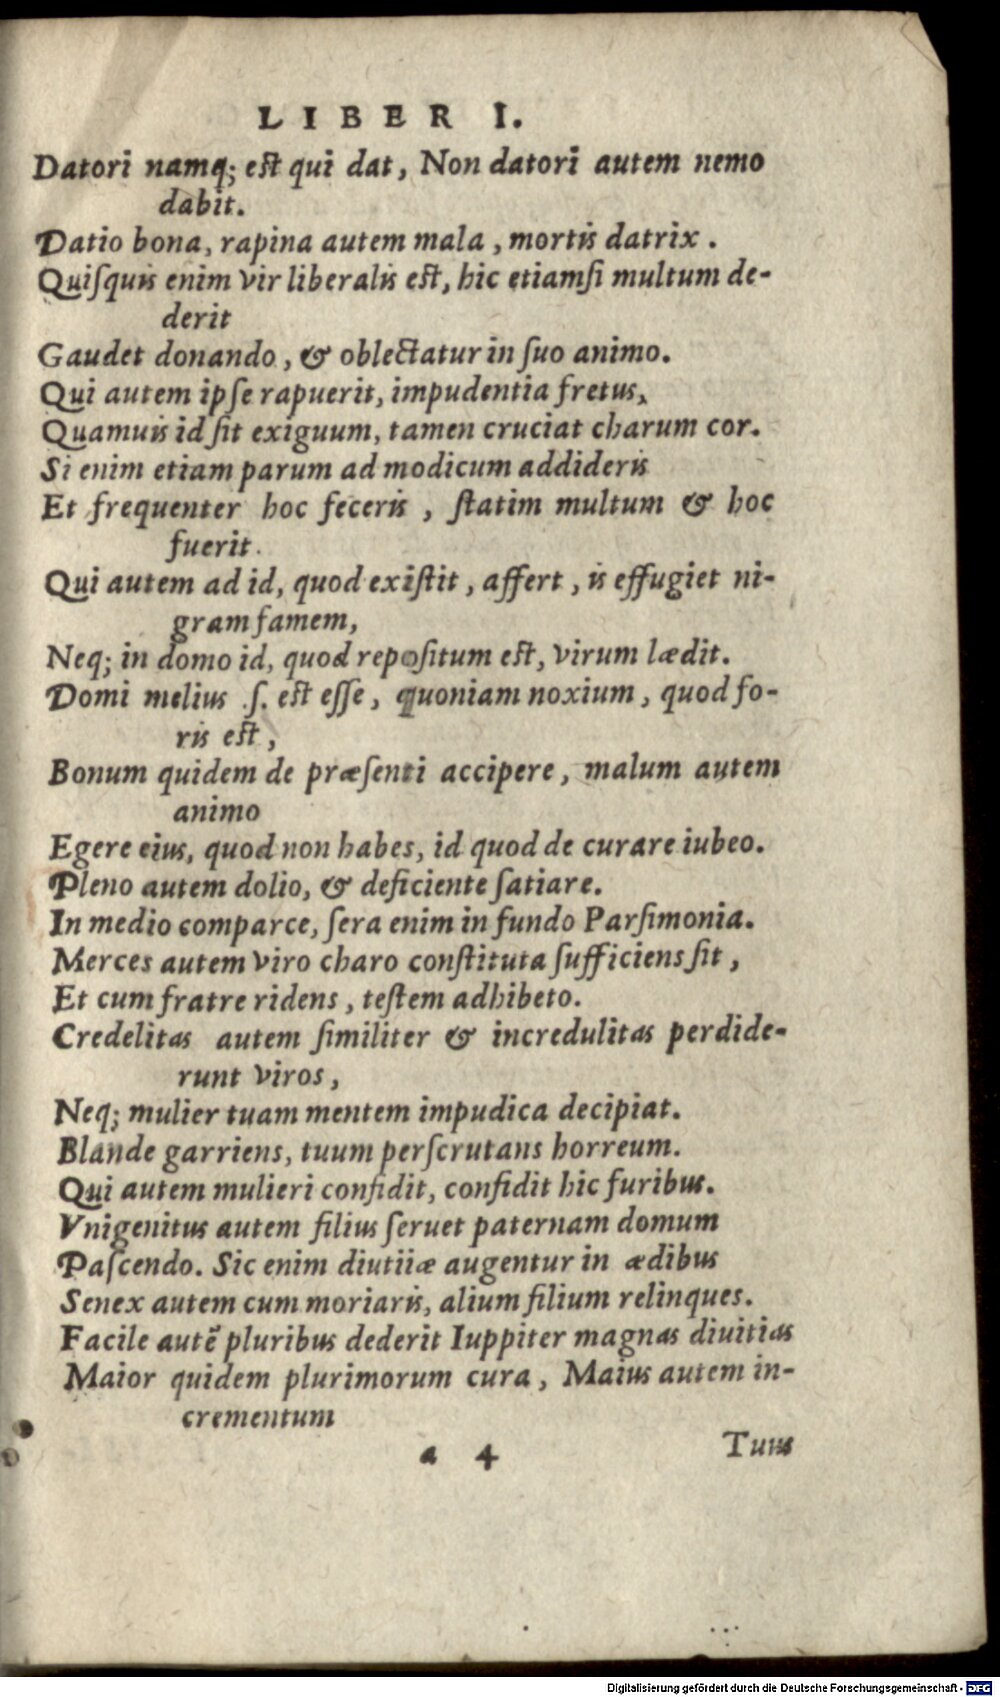 LIBER I.
Datori namq; est qui dat, Non datori autem nemo
dabit.
Datio bona, rapina autem mala, mortis datrix.
Quiſquis enim vir liberalis est, hic etiamſi multum de-
derit
Gaudet donando, & oblectatur in ſuo animo.
Qui autem ipſe rapuerit, impudentia fretus,
Quamuis id ſit exiguum, tamen cruciat charum cor.
Si enim etiam parum ad modicum addideris
Et frequenter hoc feceris, ſtatim multum & hoc
fuerit.
Qui autem ad id, quod exiſtit, affert, is effugiet ni-
gram famem,
Neq; in domo id, quod repoſitum est, virum lædit.
Domi melius .ſ. est eſſe, quoniam noxium, quod fo-
ris est,
Bonum quidem de præſenti accipere, malum autem
animo
Egere eius, quod non habes, id quod de curare iubeo.
Pleno autem dolio, & deficiente ſatiare.
In medio comparce, ſera enim in fundo Parſimonia.
Merces autem viro charo conſtituta ſufficiens ſit,
Et cum fratre ridens, teſtem adhibeto.
Credelitas autem ſimiliter & incredulitas perdide-
runt viros,
Neq; mulier tuam mentem impudica decipiat.
Blande garriens, tuum perſcrutans horreum.
Qui autem mulieri confidit, confidit hic furibus.
Vnigenitus autem filius ſeruet paternam domum
Paſcendo. Sic enim diutiiæ augentur in ædibus
Senex autem cum moriaris, alium filium relinques.
Facile autē pluribus dederit Iuppiter magnas diuitias
Maior quidem plurimorum cura, Maius autem in-
crementum
a 4
Tuus
Digitalisierung gefördert durch die Deutsche Forschungsgemeinschaft - DFG